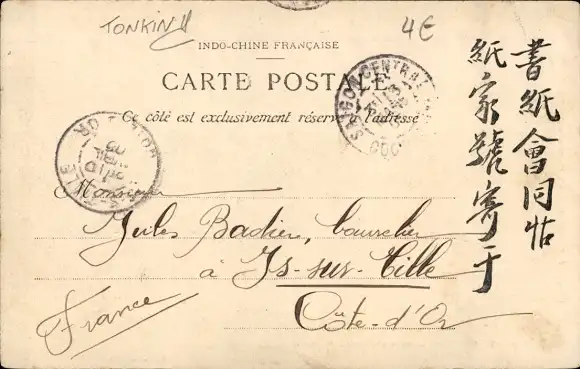 TONKIN
4€
INDO-CHINE FRANÇAISE
CARTE POSTALE
Ce côté est exclusivement réservé à l'adresse
SAIGON CENTRAL
Monsieur
Jules Badier,
à Is-sur-Tille
Côte-d'Or
France
書紙會同怙
紙家號寄于